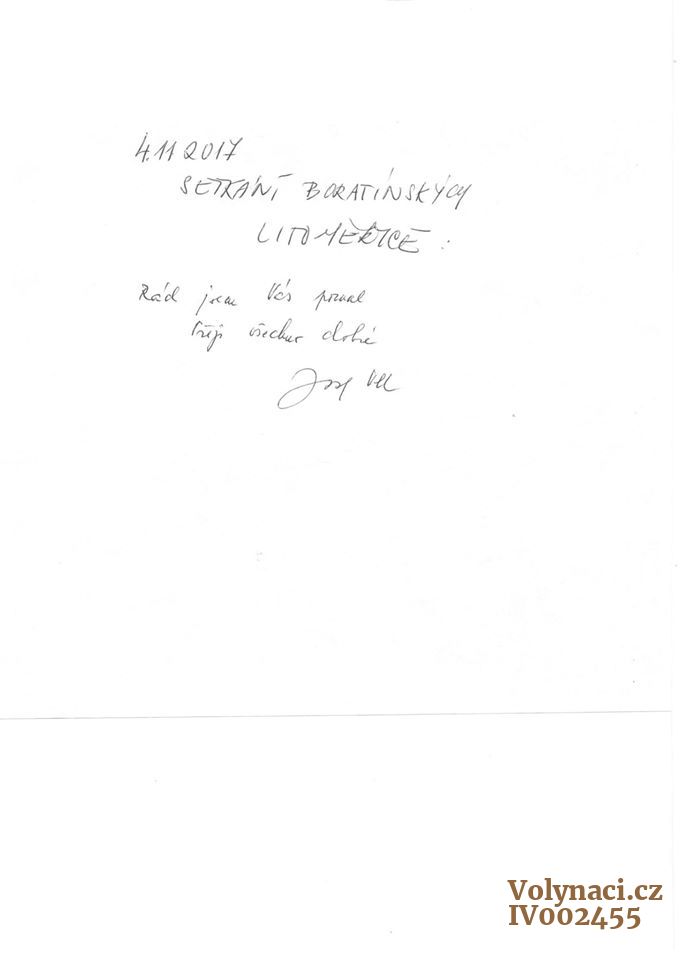 4.11 2017
SETKÁNÍ BORATÍNSKÝCH
LITOMĚŘICE :
Rád jsem Vás poznal
Přeji všechno dobré
Josef
Volynaci.cz
IV002455